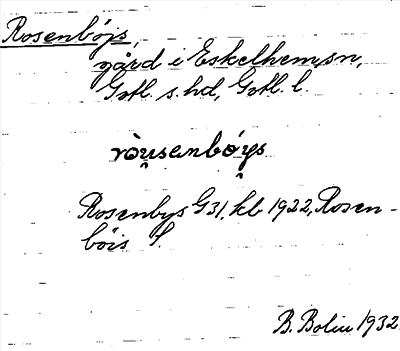 Rosenböjs,
gård i Eskelhem sn,
Gotl. s. hd, Gotl. l.
ròu̯senbǿy̯s
Rosenbys G 31, kb 1922, Rosen-
böis
B. Bolin 1932